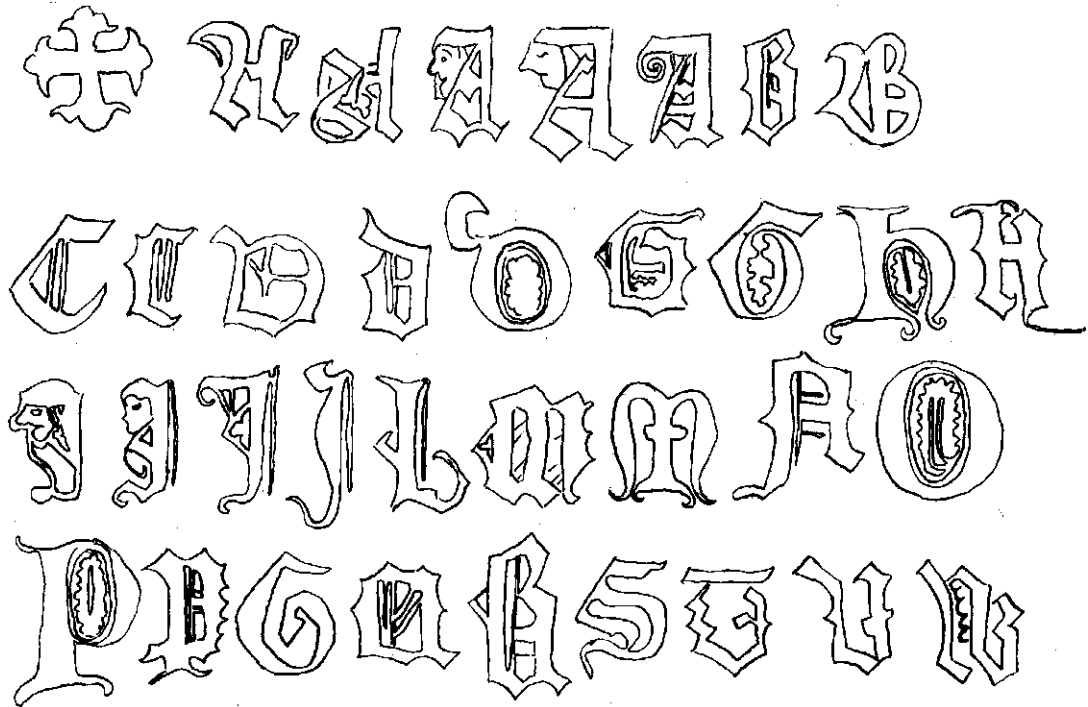 A A A A A B B
C C D D D G G H H
I I I J L M M N O
P P G Q R S T V W